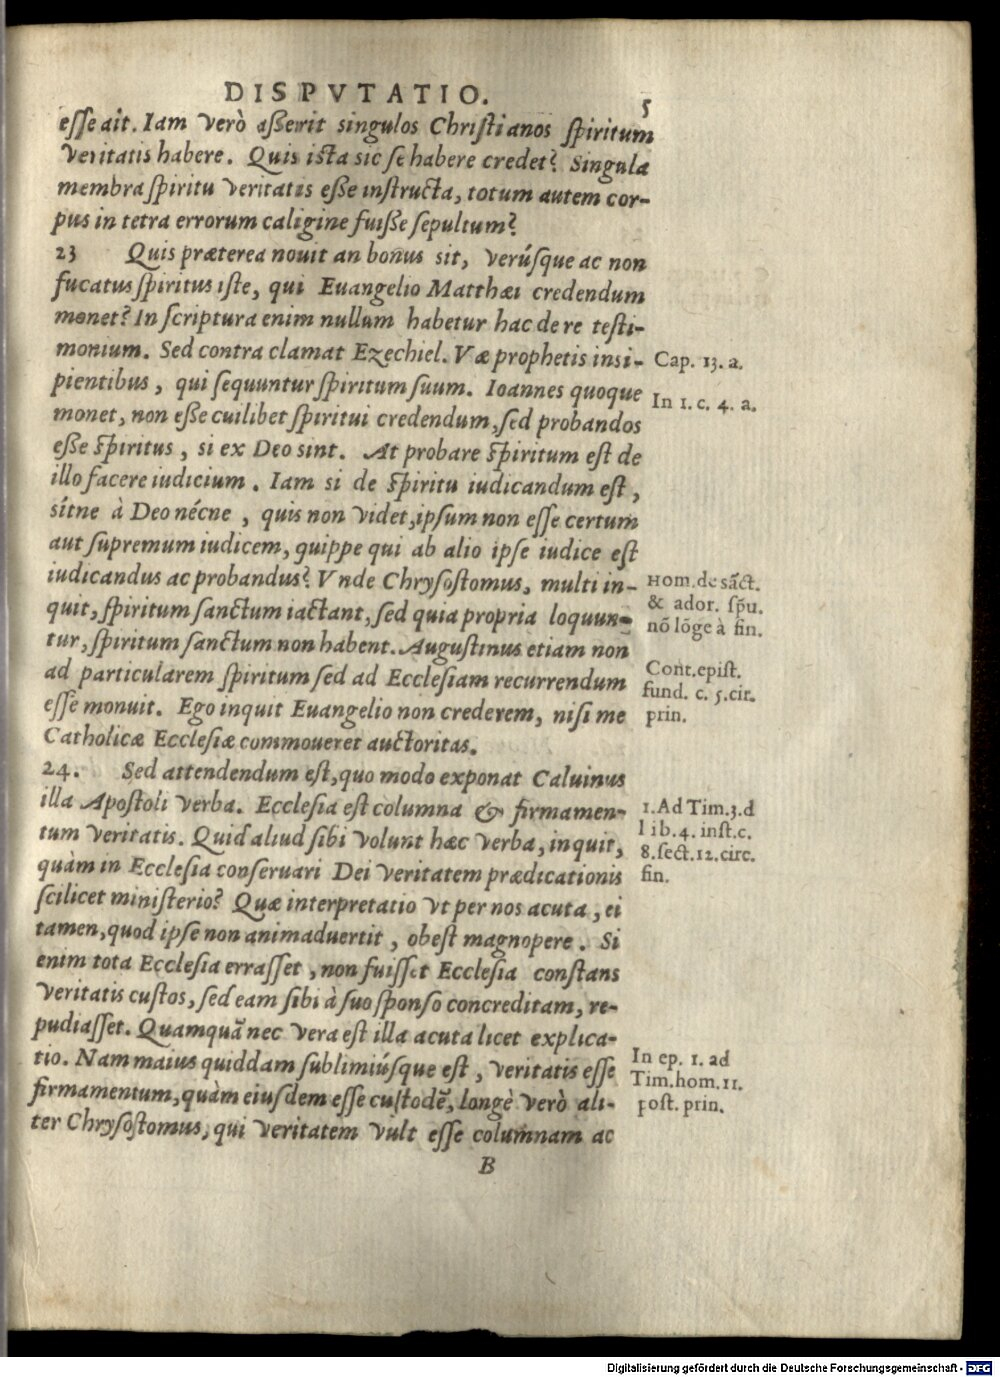 DISPVTATIO. 5
esse ait. Iam verò asserit singulos Christianos spiritum
veritatis habere. Quis ista sic se habere credet? Singula
membra spiritu veritatis esse instructa, totum autem cor-
pus in tetra errorum caligine fuisse sepultum?
23 Quis præterea nouit an bonus sit, verúsque ac non
fucatus spiritus iste, qui Euangelio Matthæi credendum
monet? In scriptura enim nullum habetur hac de re testi-
monium. Sed contra clamat Ezechiel. Væ prophetis insi-
Cap. 13. a.
pientibus, qui sequuntur spiritum suum. Ioannes quoque
In 1. c. 4. a.
monet, non esse cuilibet spiritui credendum, sed probandos
esse spiritus, si ex Deo sint. At probare spiritum est de
illo facere iudicium. Iam si de spiritu iudicandum est,
sítne à Deo nécne, quis non videt, ipsum non esse certum
aut supremum iudicem, quippe qui ab alio ipse iudice est
iudicandus ac probandus? Vnde Chrysostomus, multi in-
Hom. de sãct.
quit, spiritum sanctum iactant, sed quia propria loquun-
& ador. spũ.
nõ lõge à fin.
tur, spiritum sanctum non habent. Augustinus etiam non
ad particularem spiritum sed ad Ecclesiam recurrendum
Cont. epist.
fund. c. 5. cir.
esse monuit. Ego inquit Euangelio non crederem, nisi me
prin.
Catholicæ Ecclesiæ commoueret auctoritas.
24. Sed attendendum est, quo modo exponat Caluinus
illa Apostoli verba. Ecclesia est columna & firmamen-
1. Ad Tim. 3. d
tum veritatis. Quid aliud sibi volunt hæc verba, inquit,
Lib. 4. inst. c.
8. sect. 12. circ.
quàm in Ecclesia conseruari Dei veritatem prædicationis
fin.
scilicet ministerio? Quæ interpretatio vt per nos acuta, ei
tamen, quod ipse non animaduertit, obest magnopere. Si
enim tota Ecclesia errasset, non fuisset Ecclesia constans
veritatis custos, sed eam sibi à suo sponso concreditam, re-
pudiasset. Quamquã nec vera est illa acuta licet explica-
tio. Nam maius quiddam sublimiúsque est, veritatis esse
In ep. 1. ad
firmamentum, quàm eiusdem esse custodẽ, longè verò ali-
Tim. hom. 11.
post. prin.
ter Chrysostomus, qui veritatem vult esse columnam ac
B
Digitalisierung gefördert durch die Deutsche Forschungsgemeinschaft - DFG